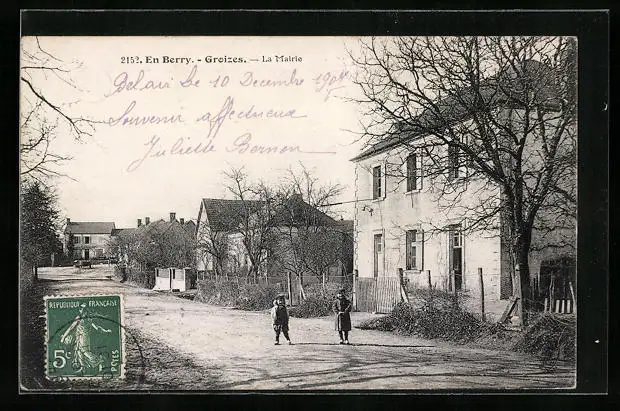 2152. En Berry. - Groizes. — La Mairie
le 10 Décembre
Souvenir affectueux
Juliette
RÉPUBLIQUE FRANÇAISE
5c
POSTES